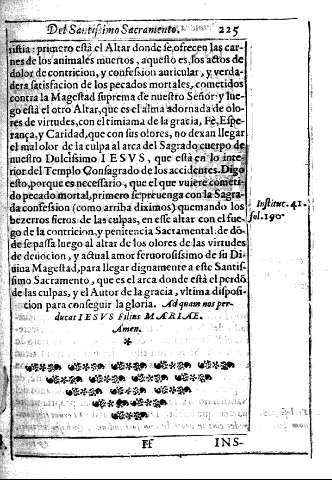 Del Santissimo Sacramento. 225
sistia: primero està el Altar donde se ofrecen las car-
nes de los animales muertos, aquesto es, los actos de
dolor de contricion, y confession auricular, y verda-
dera satisfacion de los pecados mortales, cometidos
contra la Magestad suprema de nuestro Señor: y lue-
go està el otro Altar, que es el alma adornada de olo-
res de virtudes, con el timiama de la gracia, Fè, Espe-
rança, y Caridad, que con sus olores, no dexan llegar
el mal olor de la culpa al arca del Sagrado cuerpo de
nuestro Dulcissimo IESVS, que està en lo inte-
rior del Templo Consagrado de los accidentes. Digo
esto, porque es necessario, que el que vuiere cometi-
do pecado mortal, primero se preuenga con la Sagra-
da confession (como arriba diximos) quemando los
bezerros fieros de las culpas, en esse altar con el fue-
go de la contricion, y penitencia Sacramental. de dō-
de se passa luego al altar de los olores de las virtudes
de deuocion, y actual amor feruorosissimo de su Di-
uina Magestad, para llegar dignamente a este Santis-
simo Sacramento, que es el arca donde està el perdō
de las culpas, y el Autor de la gracia, vltima disposi-
cion para conseguir la gloria. Ad quam nos per-
ducat IESVS Filius MARIAE.
Amen.
Institut. 41.
fol. 190.
Ff INS-